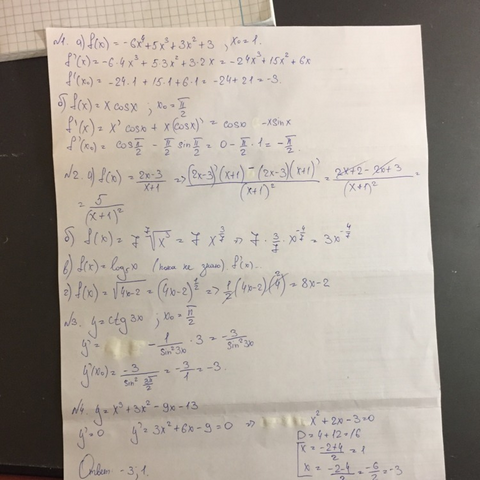 №1. а) f(x) = -6x⁴+5x³+3x²+3 , x₀=1.
f'(x)=-6·4x³+5·3x²+3·2x = -24x³+15x²+6x
f'(x₀)= -24·1+15·1+6·1= -24+21=-3.
б) f(x)= x cosx ; x₀=π/2
f'(x)= x' cosx + x(cosx)' = cosx -xsinx
f'(x₀)= cos π/2 - π/2 sin π/2 = 0 - π/2 · 1 = -π/2.
№2. а) f(x)= (2x-3)/(x+1) => ((2x-3)'(x+1) - (2x-3)(x+1)')/(x+1)² = (2x+2-2x+3)/(x+1)² =
= 5/(x+1)²
б) f(x)= 7 ⁷√x³ = 7 x^(3/7) => 7 · 3/7 · x^(-4/7) = 3x^(-4/7)
в) f(x)=log₅x (пока не знаю) f'(x).
г) f(x)= √(4x-2) = (4x-2)^(1/2) => 1/2 (4x-2)(4)² = 8x-2
№3. y=ctg3x ; x₀ π/2
y'= - 1/sin²3x · 3 = -3/sin²3x
y'(x₀)= -3/sin² 3π/2 = -3/1 = -3.
№4. y= x³+3x²-9x-13
y'=0 y'=3x²+6x-9=0 => x²+2x-3=0
D=4+12=16
x = (-2+4)/2 = 1
x = (-2-4)/2 = -6/2 = -3
Ответ: -3; 1.